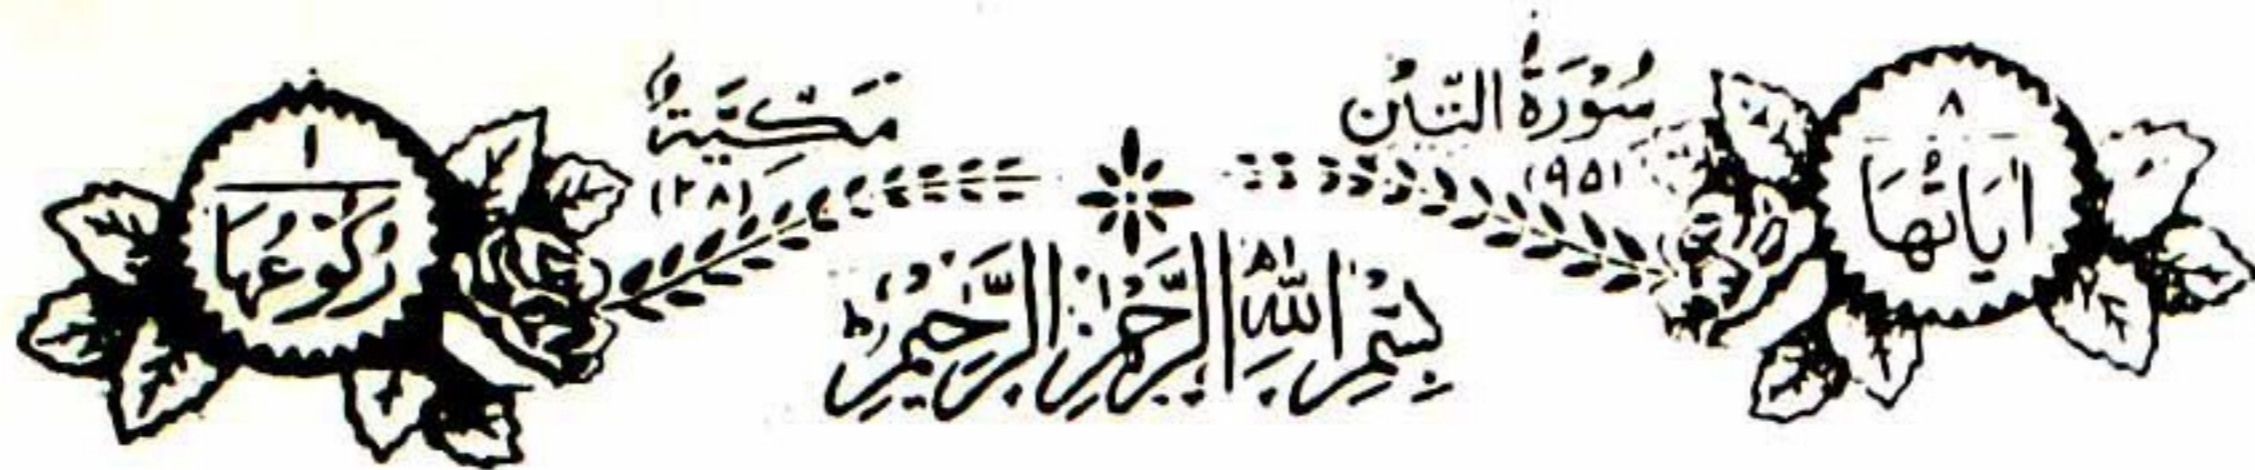 ٨
اٰيَاتُهَا
سُوْرَةُ التِّيْنِ
(٩٥)
مَكِّيَّةٌ
(٢٨)
١
رُكُوْعُهَا
بِسْمِ اللّٰهِ الرَّحْمٰنِ الرَّحِيْمِ